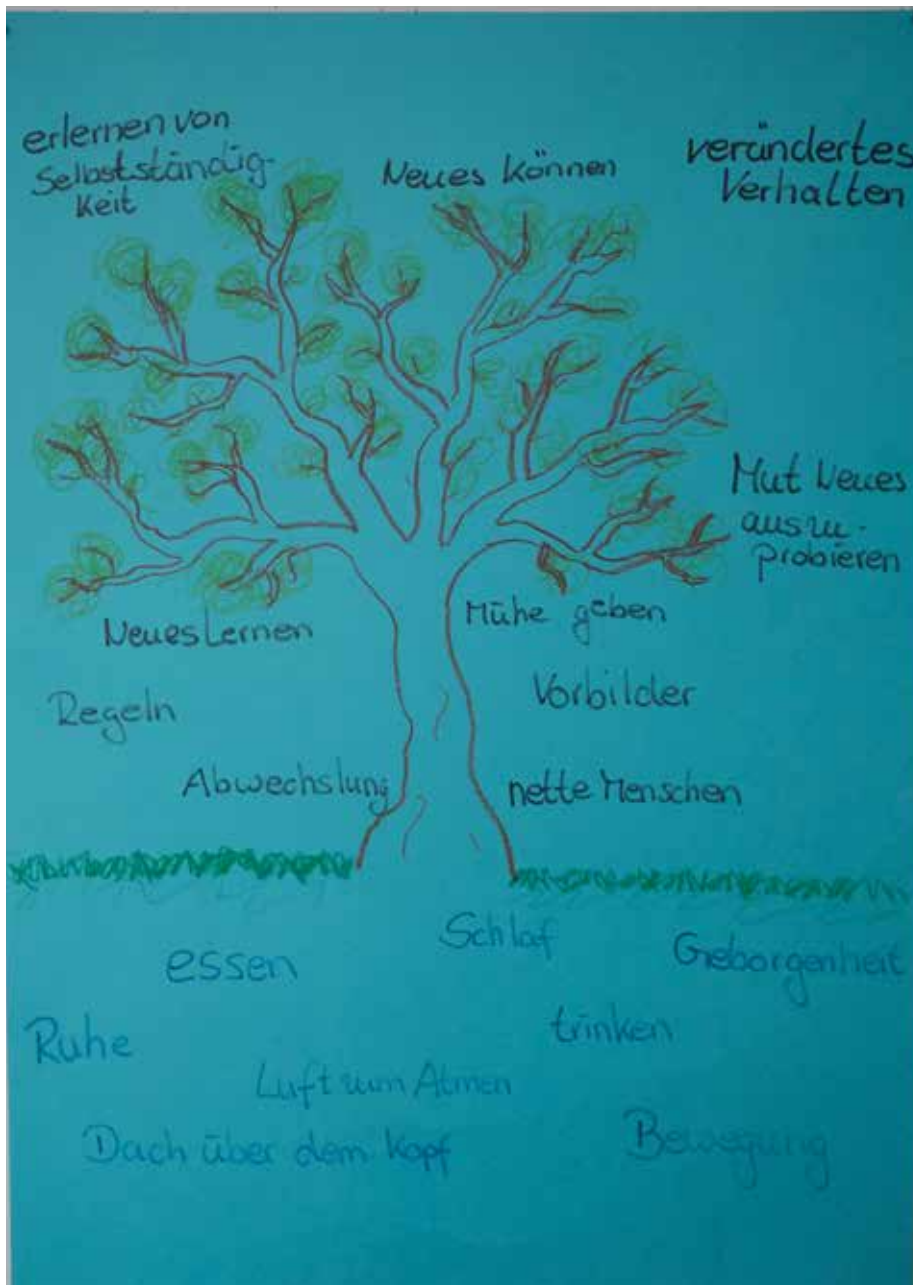 erlernen von
Selbstständig-
keit
Neues Können
verändertes
Verhalten
Mut Neues
auszu-
probieren
Neues Lernen
Mühe geben
Regeln
Vorbilder
Abwechslung
nette Menschen
Schlaf
essen
Geborgenheit
Ruhe
trinken
Luft zum Atmen
Dach über dem Kopf
Bewegung